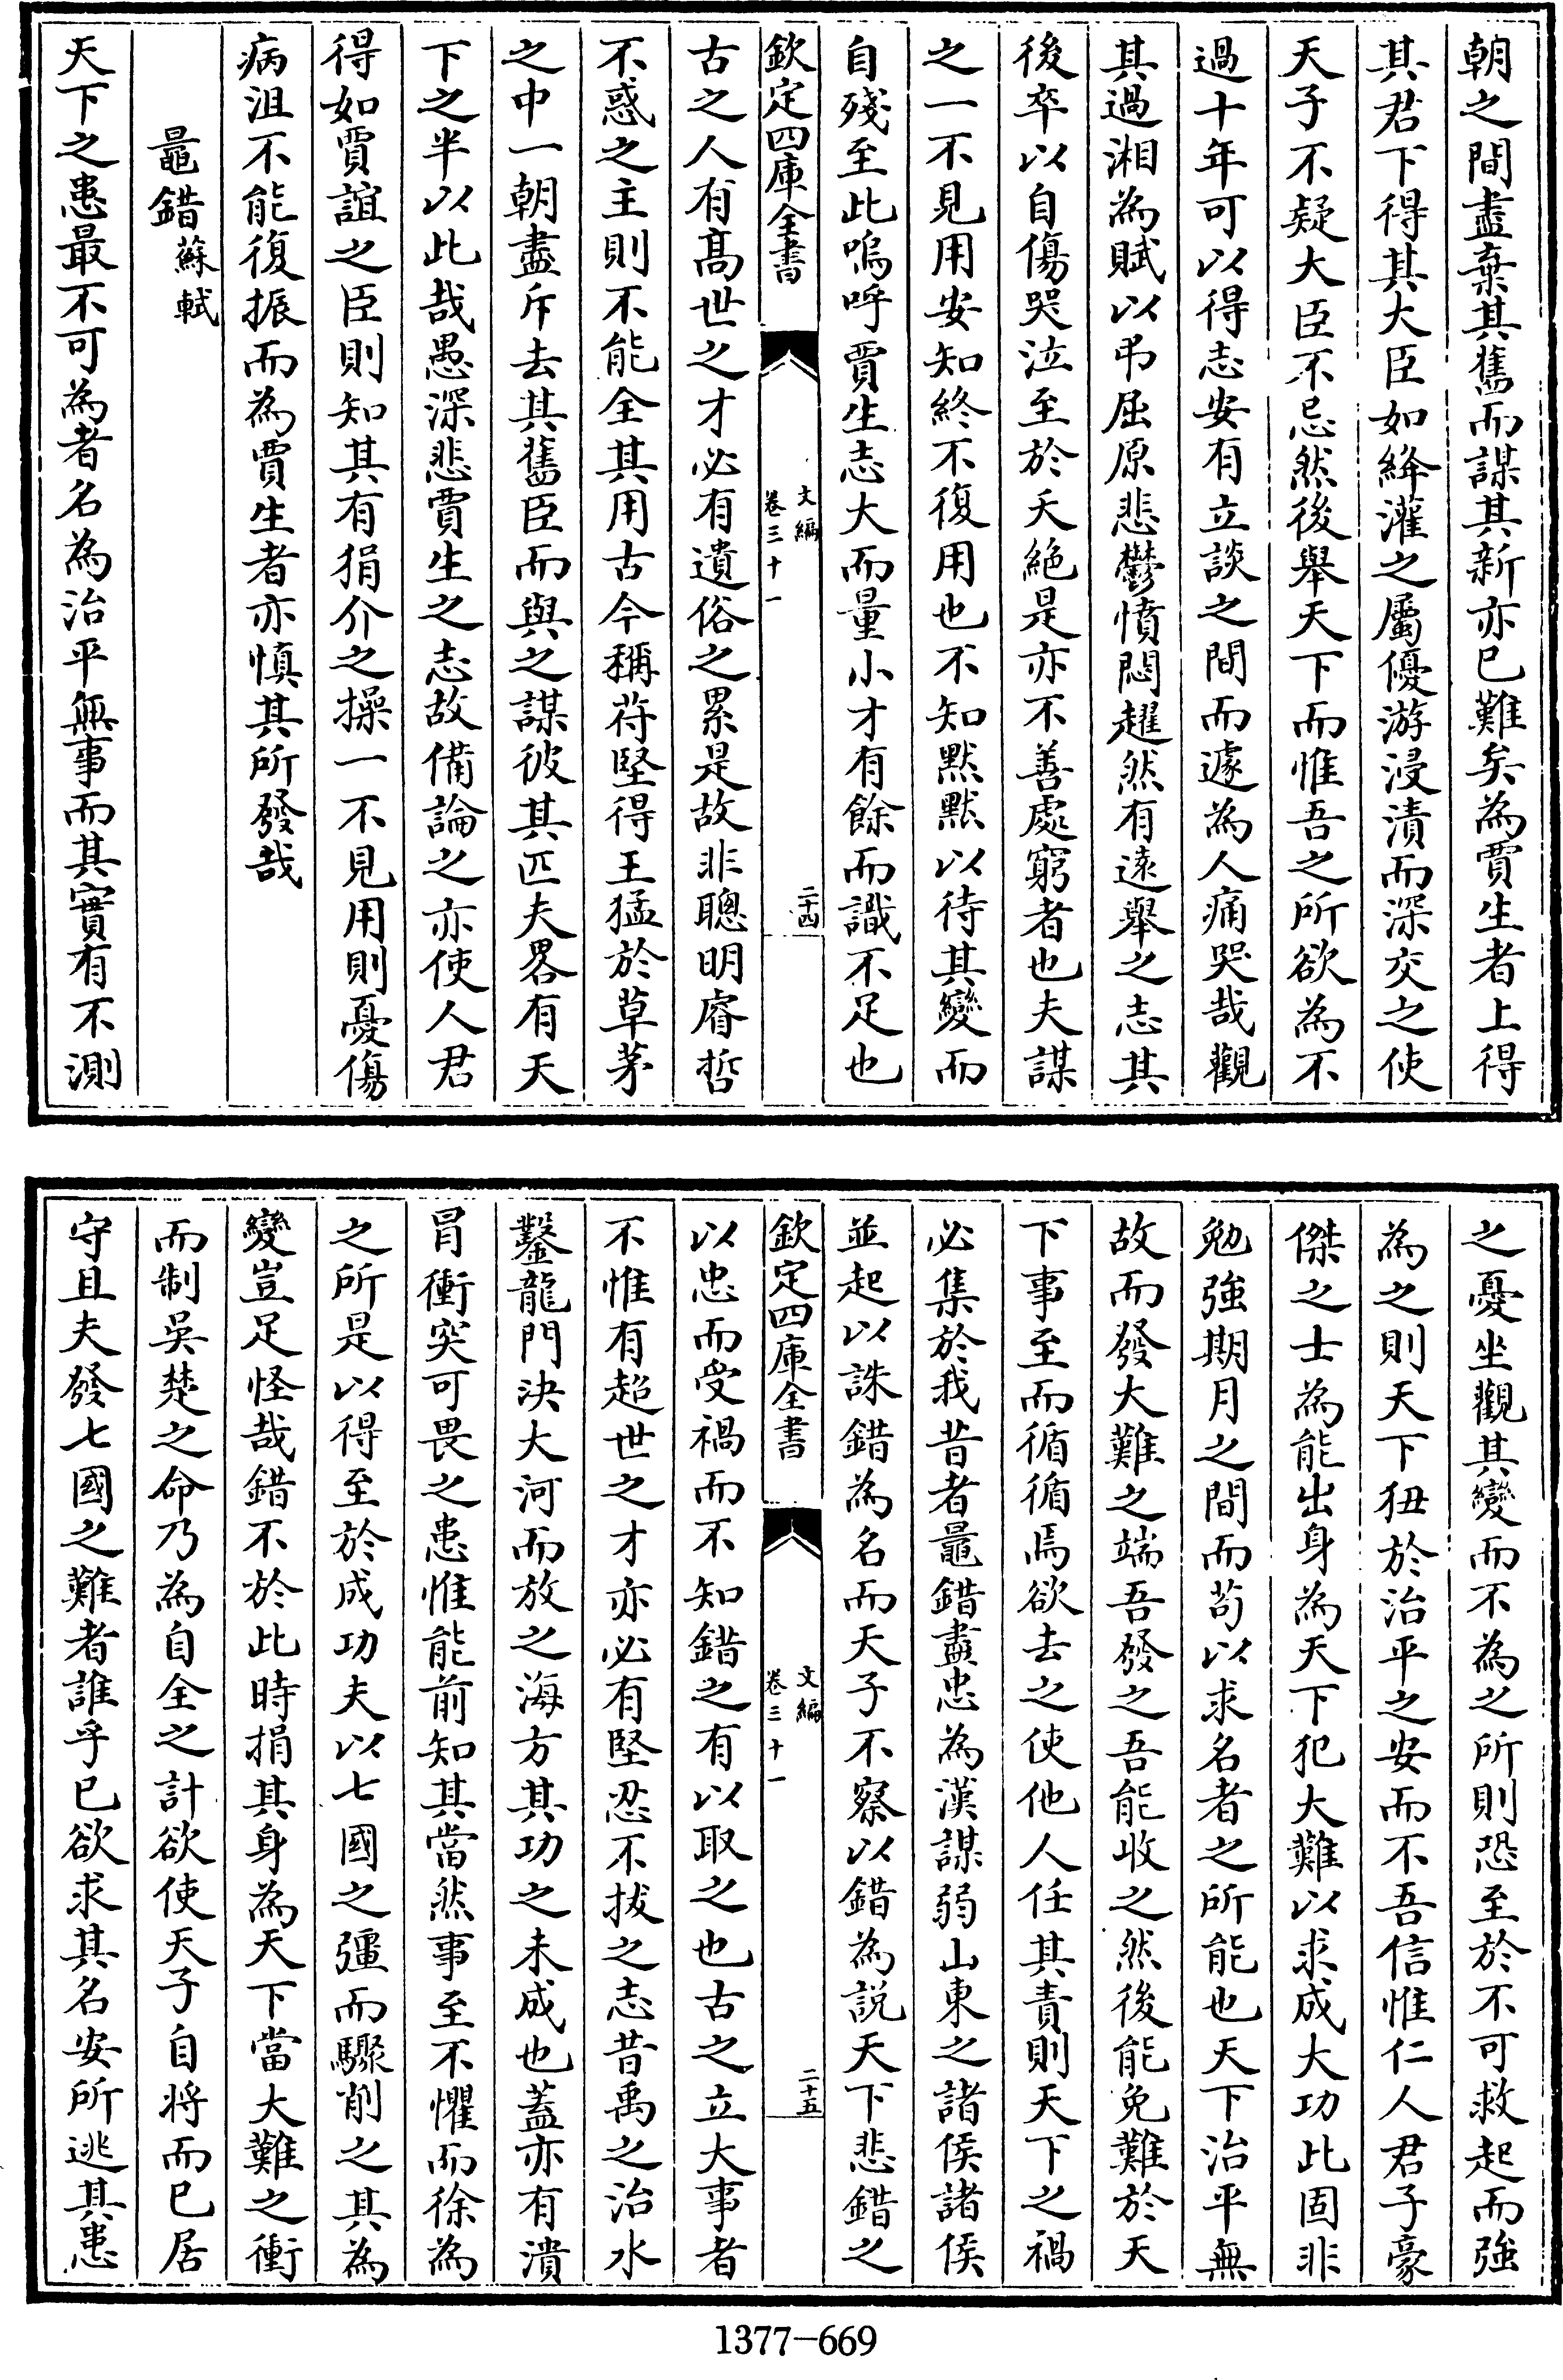 朝之間盡棄其舊而謀其新亦已難矣為賈生者上得
其君下得其大臣如絳灌之屬優游浸漬而深交之使
天子不疑大臣不忌然後舉天下而惟吾之所欲為不
過十年可以得志安有立談之間而遽為人痛哭哉觀
其過湘為賦以弔屈原悲鬱憤悶趯然有遠舉之志其
後卒以自傷哭泣至於夭絕是亦不善處窮者也夫謀
之一不見用安知終不復用也不知默默以待其變而
自殘至此嗚呼賈生志大而量小才有餘而識不足也
欽定四庫全書
文編
卷三十一
二十四
古之人有髙世之才必有遺俗之累是故非聰明睿哲
不惑之主則不能全其用古今稱苻堅得王猛於草茅
之中一朝盡斥去其舊臣而與之謀彼其匹夫畧有天
下之半以此哉愚深悲賈生之志故備論之亦使人君
得如賈誼之臣則知其有狷介之操一不見用則憂傷
病沮不能復振而為賈生者亦慎其所發哉
鼂錯 蘇軾
天下之患最不可為者名為治平無事而其實有不測
之憂坐觀其變而不為之所則恐至於不可救起而強
為之則天下狃於治平之安而不吾信惟仁人君子豪
傑之士為能出身為天下犯大難以求成大功此固非
勉強期月之間而茍以求名者之所能也天下治平無
故而發大難之端吾發之吾能收之然後能免難於天
下事至而循循焉欲去之使他人任其責則天下之禍
必集於我昔者鼂錯盡忠為漢謀弱山東之諸侯諸侯
並起以誅錯為名而天子不察以錯為說天下悲錯之
欽定四庫全書
文編
卷三十一
二十五
以忠而受禍而不知錯之有以取之也古之立大事者
不惟有超世之才亦必有堅忍不拔之志昔禹之治水
鑿龍門決大河而放之海方其功之未成也蓋亦有潰
冒衝突可畏之患惟能前知其當然事至不懼而徐為
之所是以得至於成功夫以七國之彊而驟削之其為
變豈足怪哉錯不於此時捐其身為天下當大難之衝
而制吳楚之命乃為自全之計欲使天子自將而已居
守且夫發七國之難者誰乎已欲求其名安所逃其患
1377-669